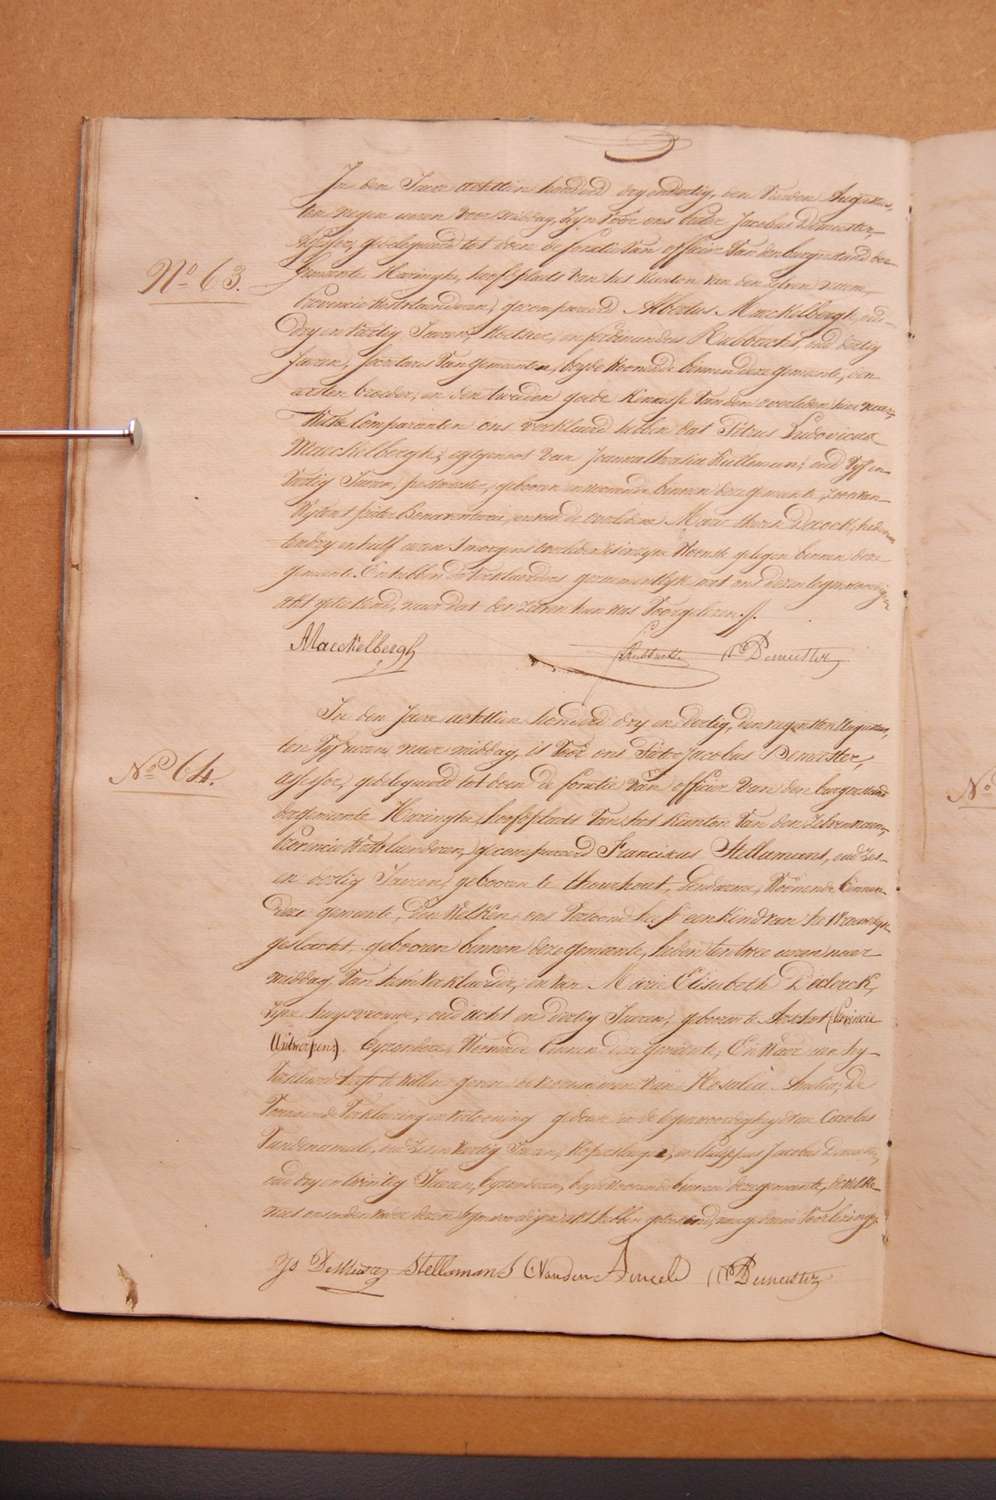 In den Jaere achttien honderd dry en dertig, den Augustus,
ten negen uren voor middag, zyn voor ons Jacobus Demeester,
Assessor, gedelegueerd tot doen de fonctie van officier van den burgerstand der
No 63.
Gemeente Haringhe, hoofdplaets van het kanton van den zelven naem,
provincie Westvlaenderen, gecompareerd Albertus Marckelbergh, oud
dry en veertig Jaeren, Koster, en ferdinandus Rubbrecht, oud dertig
Jaeren, van gemeenten, beyde woonende binnen deze gemeente, den
eersten broeder, en den tweeden goede kennisse van den overleden hier naer,
Welke Comparanten ons verklaerd hebben dat Petrus Ludovicus
Marckelbergh, egtgenoot van oud vyf en
veertig Jaeren, gebooren en woonende binnen deze gemeente, zoon van
wylent en de Marie Decock, heden
ten dry en half uren 's morgens overleden is in zyne Woonste gelegen binnen deze
gemeente. En hebben de verklaerders gezamentlyk met ons dezen tegenwoordigen
akt geteekend, naer dat hen was voorgelezen.
Marckelbergh Demeester
In den Jaere achttien honderd dry en dertig, den negensten Augustus,
ten vyf uren naer middag, is voor ons Jacobus Demeester,
No 64.
assessor, gedelegueerd tot doen de fonctie van officier van den burgerstand
der gemeente Haringhe, hoofdplaets van het kanton van den zelven naem,
provincie Westvlaenderen, gecompareerd Franciskus Stellamans, oud zes
en dertig Jaeren, gebooren te thourhout, Gendarme, Woonende binnen
deze gemeente, Den Welken ons vertoond heeft een kind van het vrouwelyk
geslacht, gebooren binnen deze gemeente, heden ten twee uren naer
middag van hem verklaerder, en van Marie Elisabeth Dedock,
zyne huysvrouwe, oud acht en dertig Jaeren, gebooren te (provincie
Antwerpen), byzondere, Woonende binnen deze gemeente, En Waer aen hy
verklaerd heeft te willen geven de voornamen van Rosalie Amelie, De
voornoemde verklaering en vertooning gedaen in de tegenwoordigheyd van Carolus
Vandenameele, oud zes en veertig Jaeren, en Philippus Jacobus
oud dry en twintig Jaeren, byzondere, beyde woonende binnen deze gemeente, de welke
met ons onder dezen tegenwoordigen akt hebben geteekend, naer gedaene voorlezing.
Stellamans C Vanden Ameele Demeester